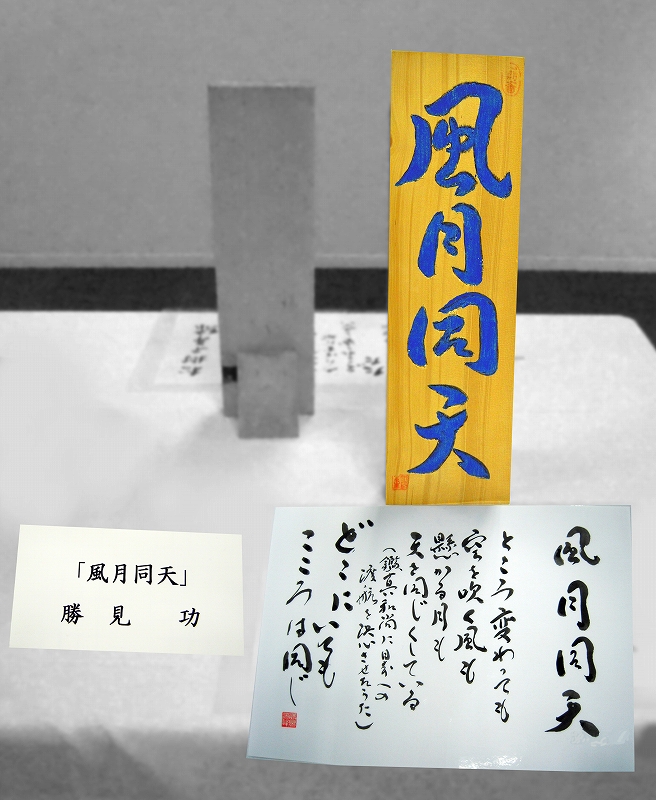 風月同天
風月同天
ところ変わっても
空を吹く風も
懸かる月も
天を同じくしている
(鑑真和尚に日本への
渡航を決心させたうた)
どこにいても
こころは同じ
「風月同天」
勝見 功